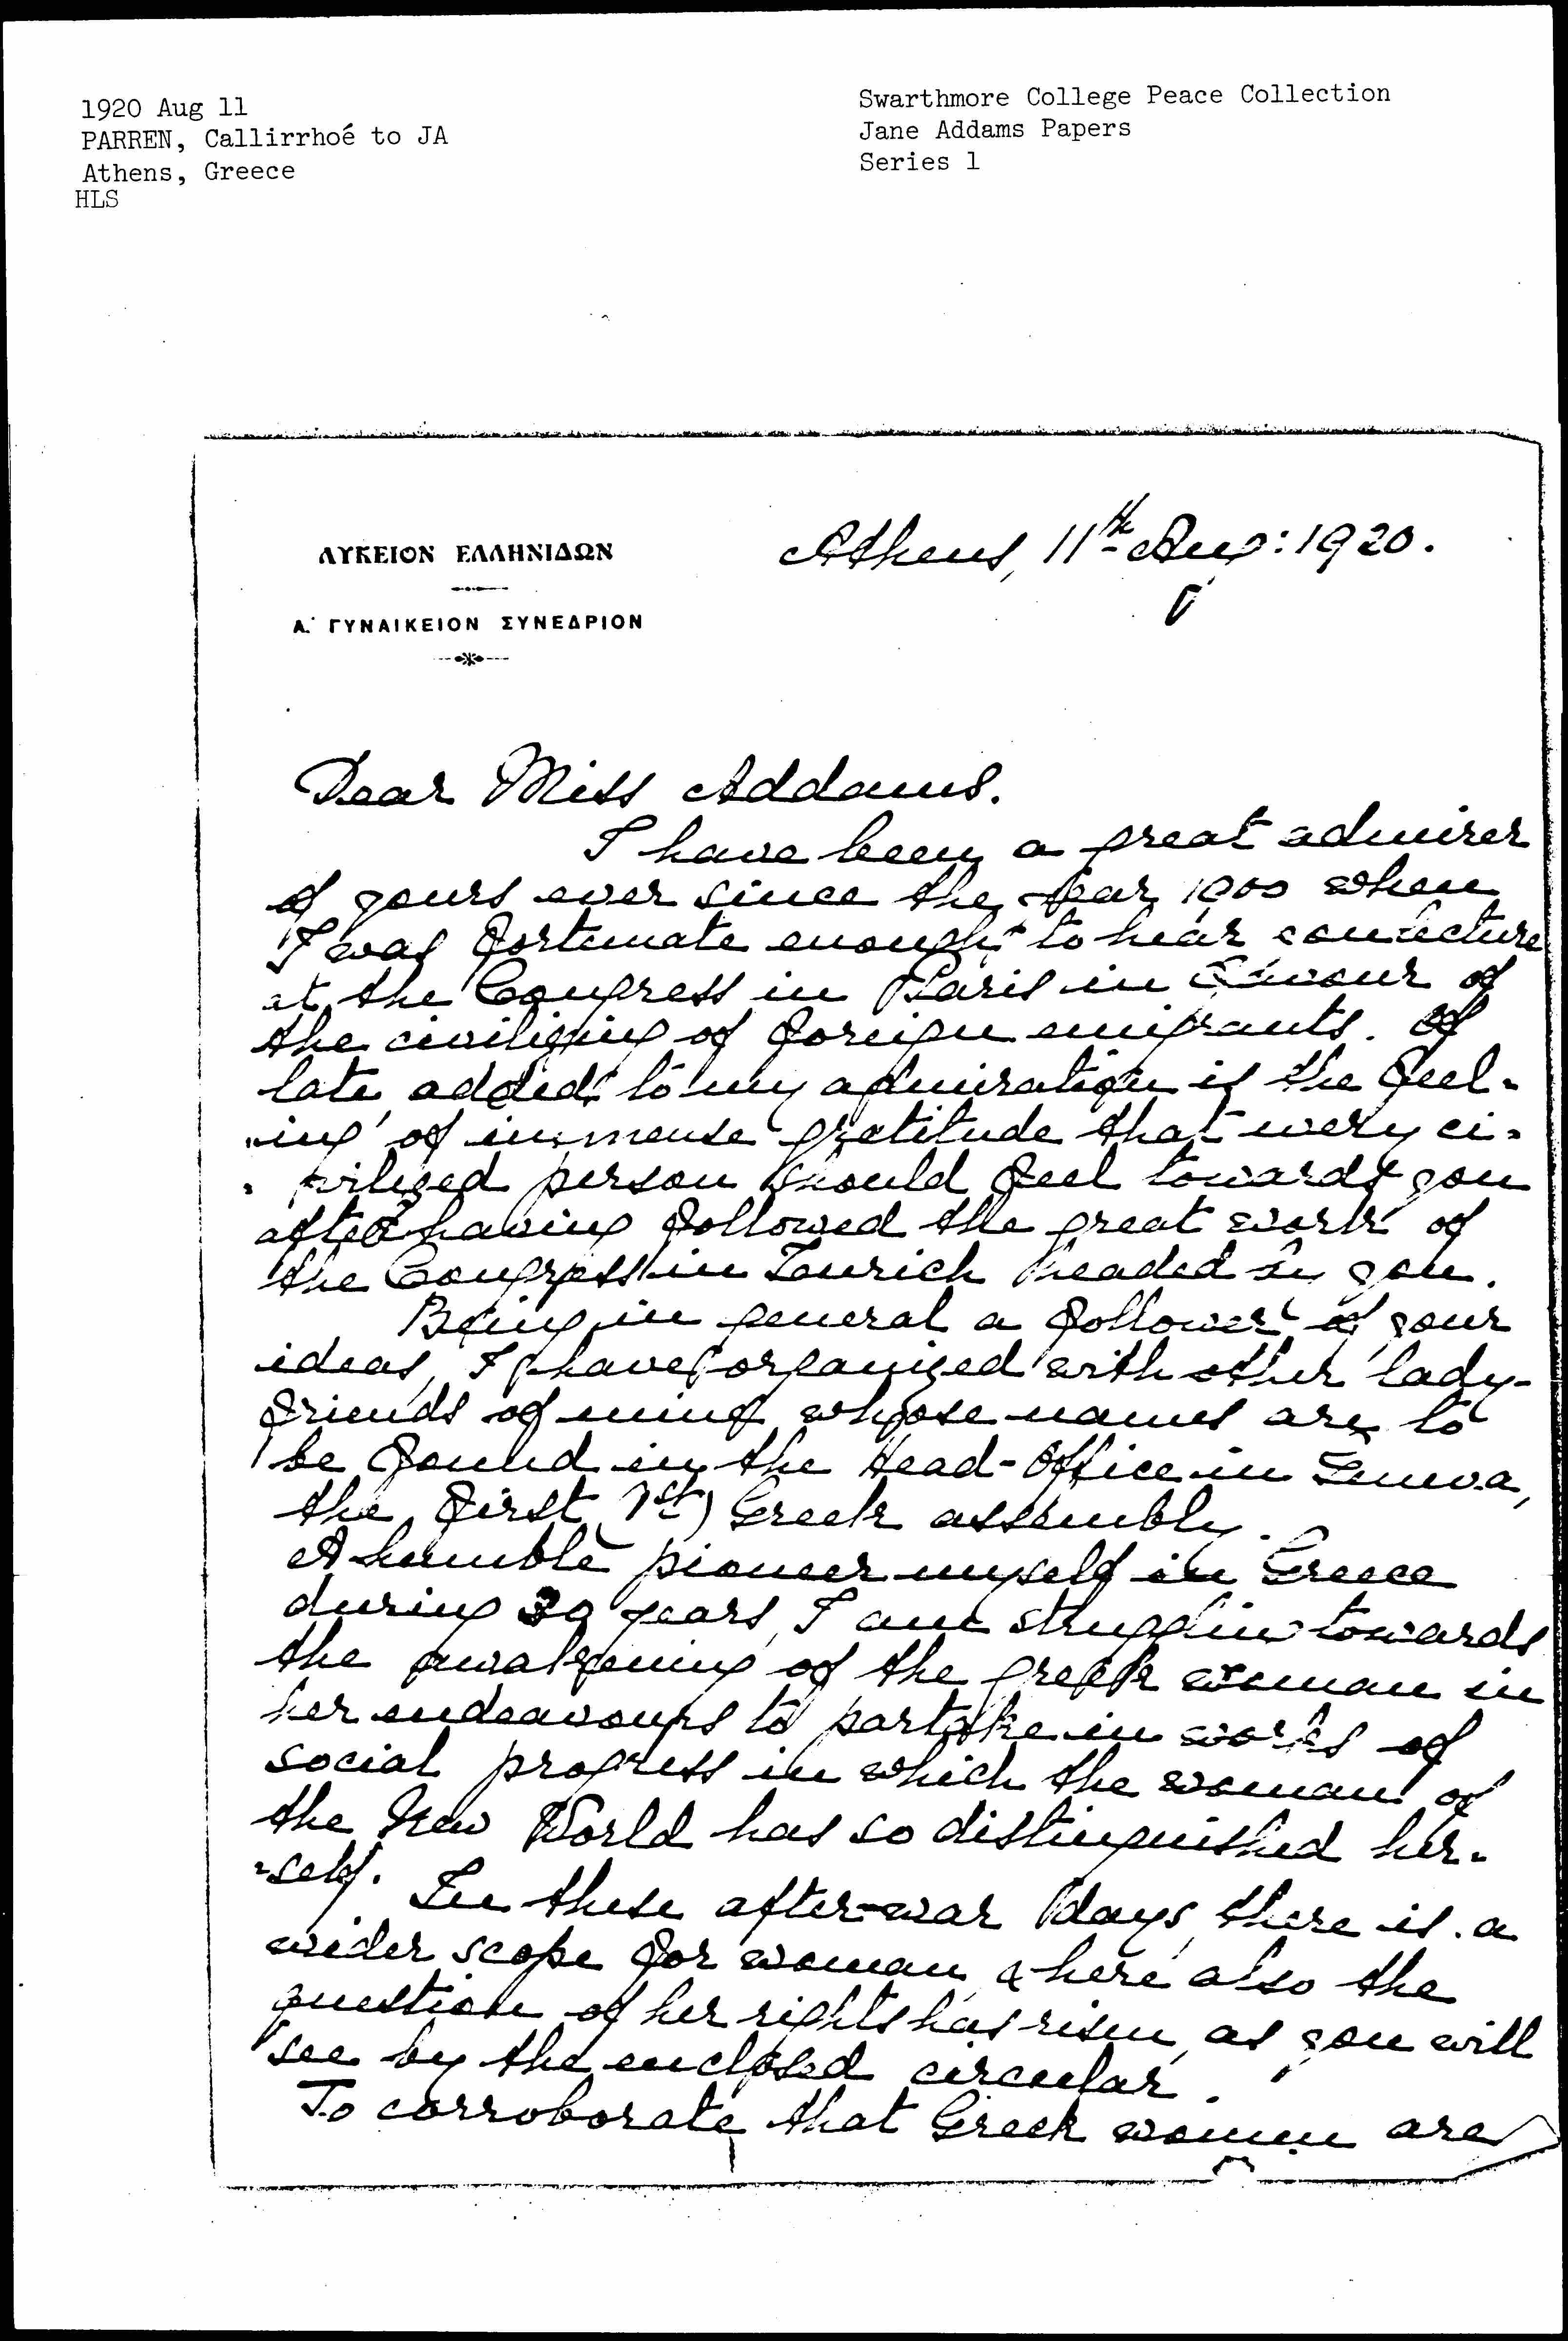 1920 Aug 11
PARREN, Callirrhoé to JA
Athens, Greece
HLS
Swarthmore College Peace Collection
Jane Addams Papers
Series 1
ΛΥΚΕΙΟΝ ΕΛΛΗΝΙΔΩΝ
Α.΄ ΓΥΝΑΙΚΕΙΟΝ ΣΥΝΕΔΡΙΟΝ
Athens, 11th Aug: 1920.
Dear Miss Addams.
I have been a great admirer
of yours ever since the year 1900 when
I was fortunate enough to hear
at the Congress in Paris in favour of
the civilizing of foreign emigrants. Of
late added to my admiration is the feel-
-ing of immense gratitude that every ci-
-vilized person should feel towards you
after having followed the great work of
the Congress in Zurich headed by you.
Being in general a follower of your
ideas, I have organized with other lady-
friends of mine whose names are to
be found in the Head-Office in Geneva,
the first 1st) Greek assembly.
A humble pioneer myself in Greece
during 30 years, I am struggling towards
the awakening of the greek woman in
her endeavours to partake in works of
social progress in which the woman of
the New World has so distinguished her-
-self.
In these after-war days, there is a
wider scope for woman, & here also the
question of her rights has risen, as you will
see by the enclosed circular.
To corroborate that Greek women are